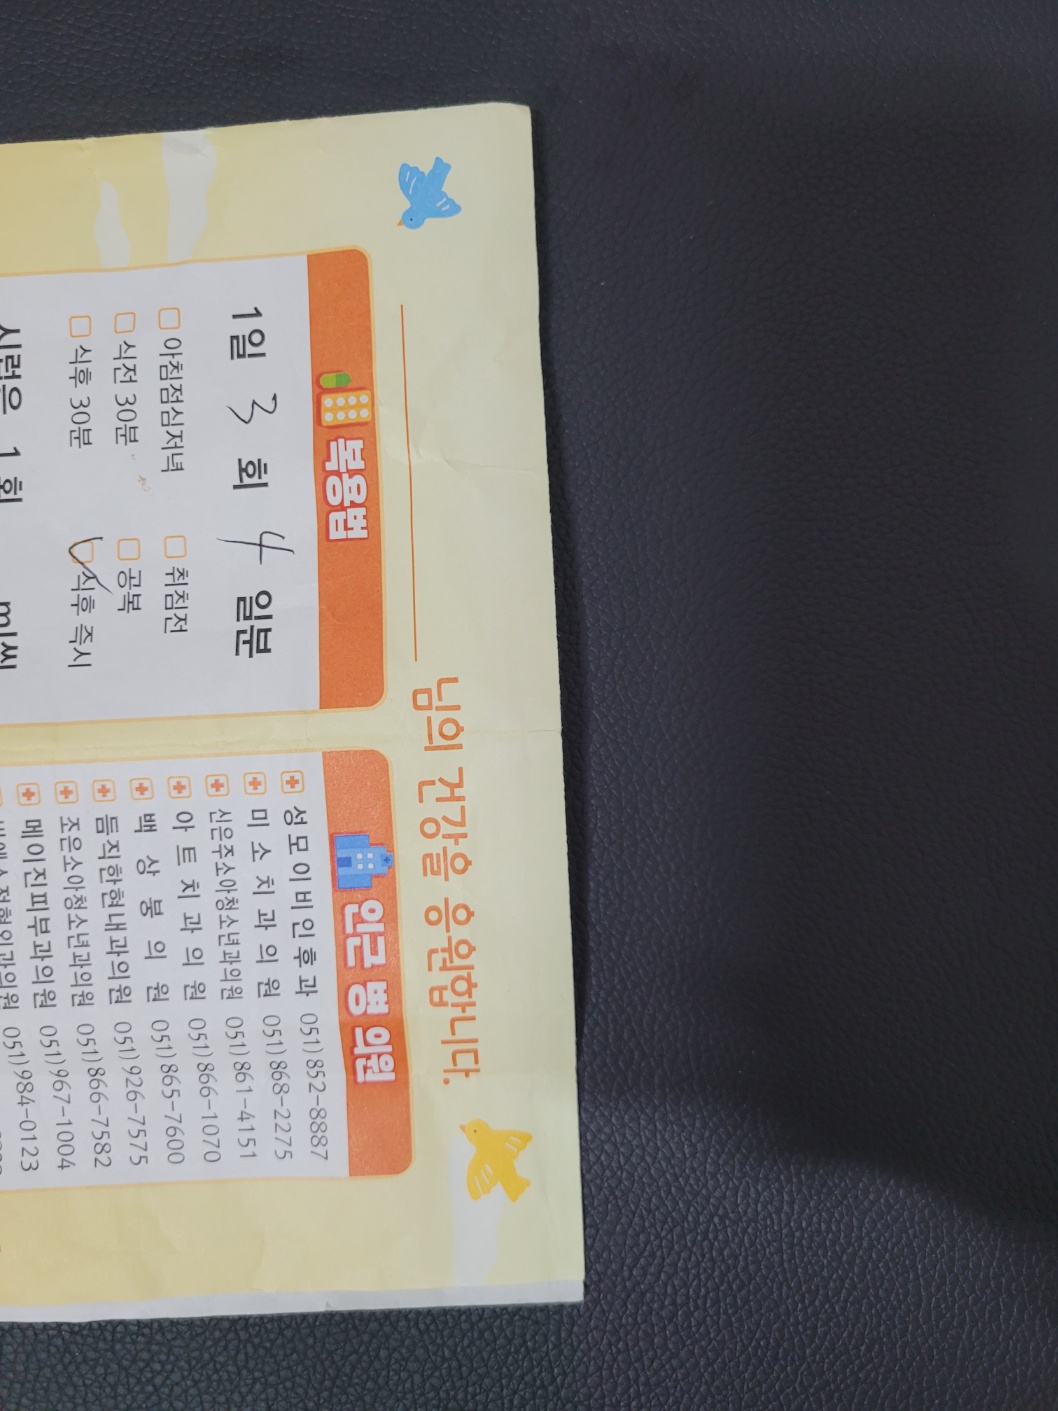 님의 건강을 응원합니다.
복용법
1일 3 회 4 일분
아침점심저녁 취침전
식전 30분 공복
식후 30분 식후 즉시
시럽은 1회 ml씩
인근 병 의원
성모이비인후과 051) 852-8887
미소치과의원 051) 868-2275
신은주소아청소년과의원 051) 861-4151
아트치과의원 051) 866-1070
백상봉의원 051) 865-7600
듬직한현내과의원 051) 926-7575
조은소아청소년과의원 051) 866-7582
메이진피부과의원 051) 967-1004
051) 984-0123